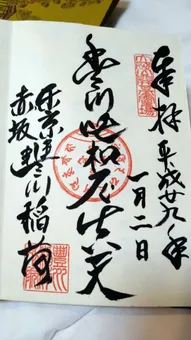 奉拝
平成廿九年
一月二日
豊川吒枳尼真天
東京
赤坂豊川稲荷